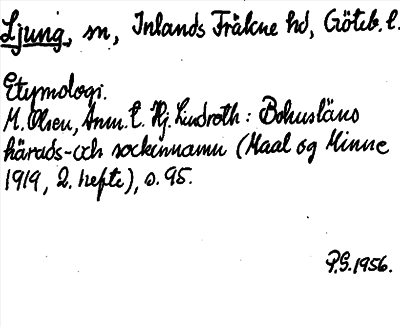 Ljung, sn, Inlands Fräkne hd, Göteb. l.
Etymologi.
M. Olsen, Anm. t. Hj. Lindroth: Bohusläns
härads- och sockennamn (Maal og Minne
1919, 2. hefte), s. 95.
P.G. 1956.